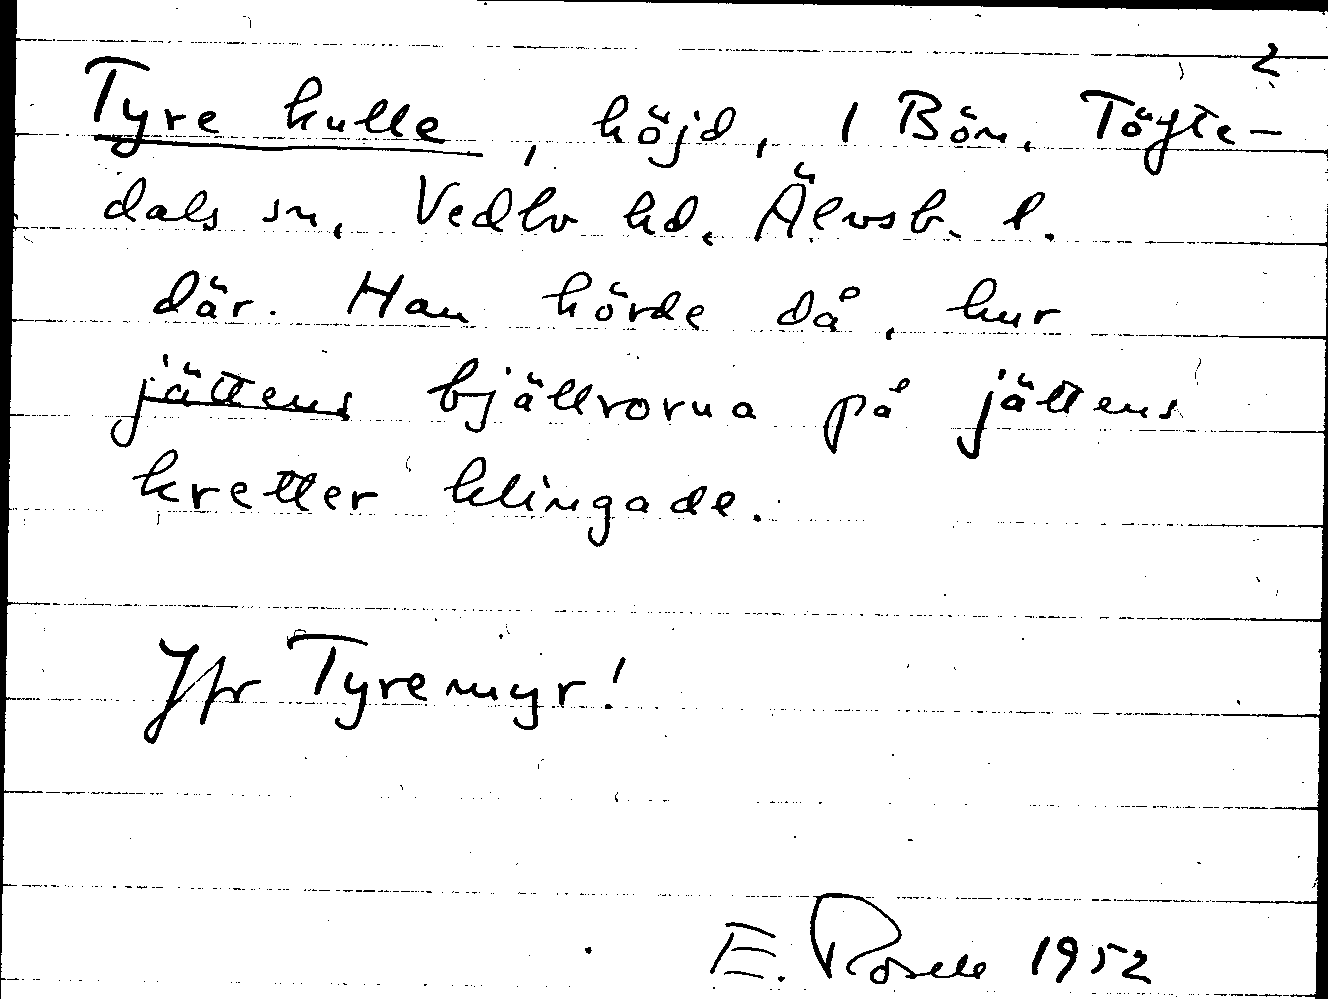 2
Tyre kulle, höjd, 1 Bön, Töfte-
dals sn, Vedbo hd, Älvsb. l.
där. Han hörde då, hur
jättens bjällrorna på jättens
kretter klingade.
Jfr Tyremyr!
E. Rosell 1952